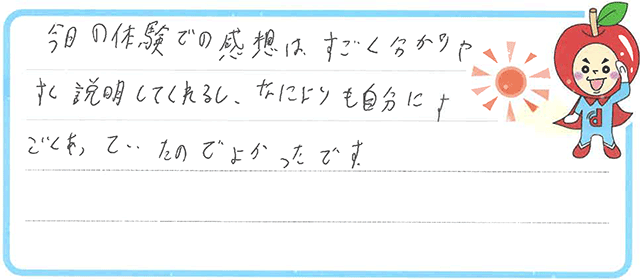 今日の体験での感想は、すごく分かりや
すく説明してくれるし、なによりも自分にす
ごくあっていたのでよかったです
d